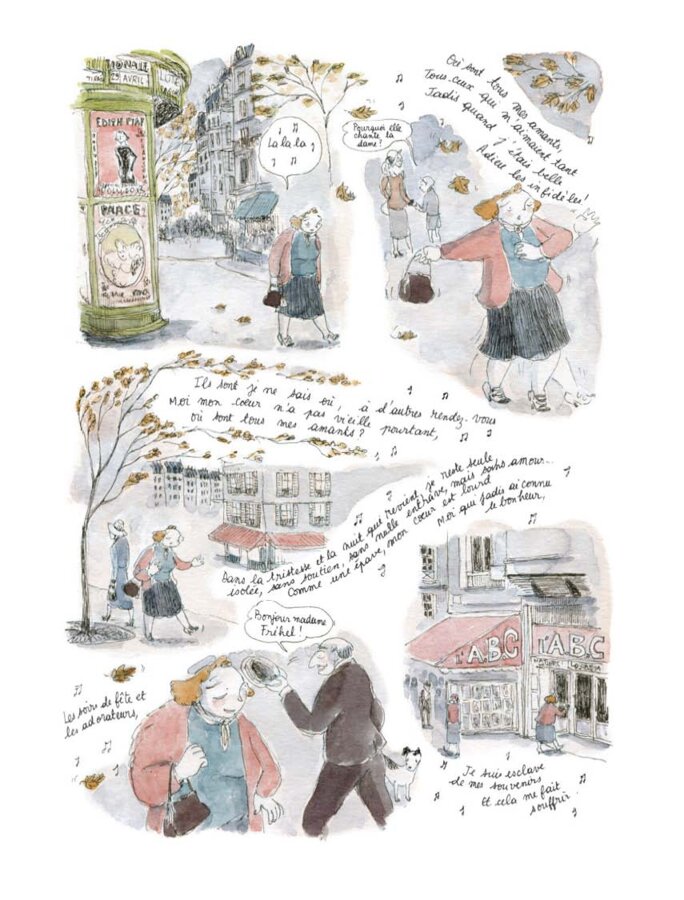 29 AVRIL
EDITH PIAF
la la la
Pourquoi elle
chante la
dame?
Où sont tous mes amants,
Tous ceux qui m'aimaient tant
Jadis quand j'étais belle
Adieu les infidèles!
Ils sont je ne sais où, à d'autres rendez-vous
Moi mon cœur n'a pas vieilli pourtant,
où sont tous mes amants?
Dans la tristesse et la nuit qui revient je reste seule,
isolée, sans soutien, sans nulle entrave, mais sans amour...
Comme une épave, mon cœur est lourd
Moi qui jadis ai connu
le bonheur,
Les soirs de fête et
les adorateurs,
Bonjour madame
Fréhel!
l'A.B.C
l'A.B.C
Je suis esclave
de mes souvenirs
Et cela me fait
souffrir.